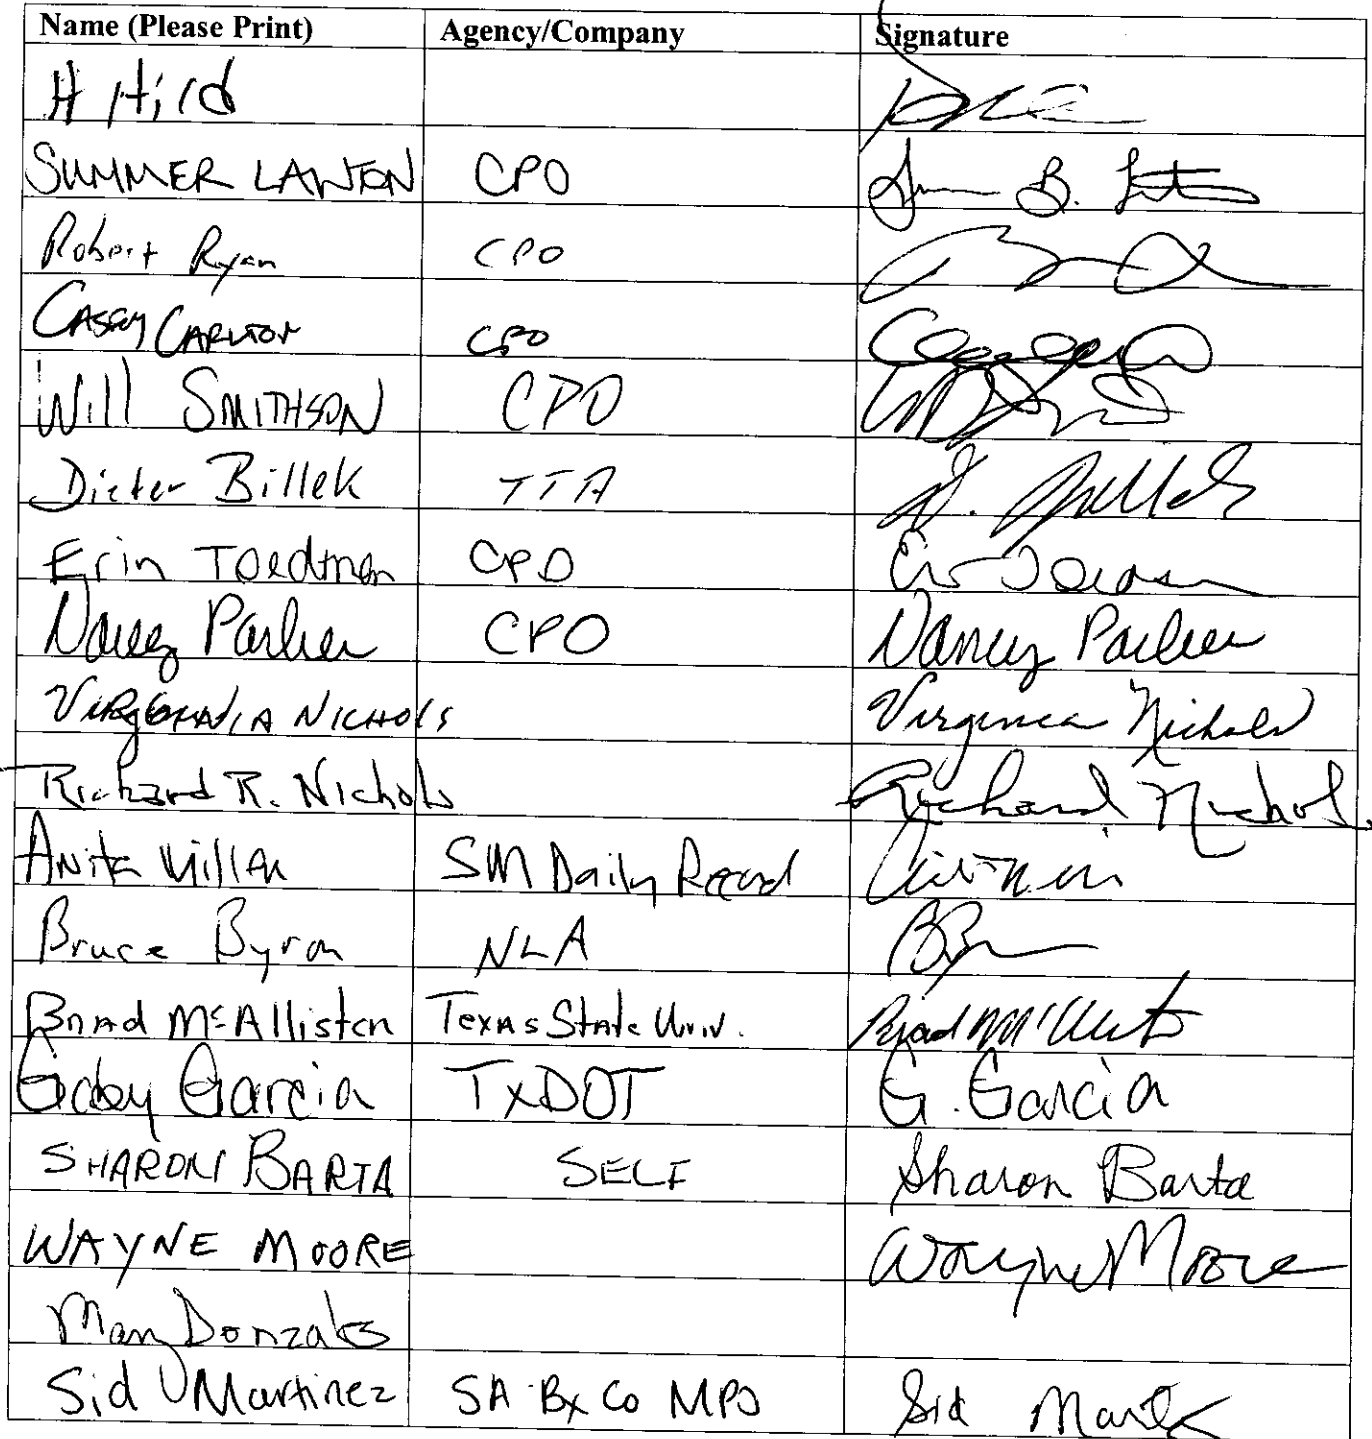 Name (Please Print) Agency/Company Signature
H Hird
SUMMER LAWTON CPO
Robert Ryan CPO
CASEY CARLTON CPO
Will SMITHSON CPO
Dieter Billek TTA D. Billek
Erin Toedtman CPO
Nancy Parker CPO Nancy Parker
VIRGINIA NICHOLS Virginia Nichols
Richard R. Nichols Richard Nichols
Anita Miller SM Daily Record
Bruce Byron NLA
Brad McAllister Texas State Univ. Brad McAllister
Gaby Garcia TxDOT G. Garcia
SHARON BARTA SELF Sharon Barta
WAYNE MOORE Wayne Moore
Sid Martinez SA-Bx Co MPO Sid